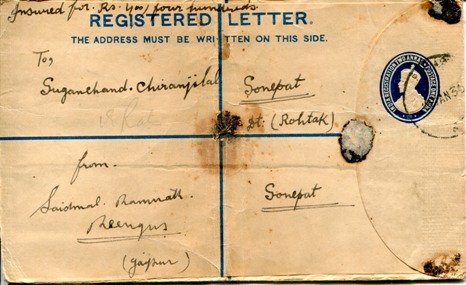 Insured for Rs. 400/ four hundreds.
REGISTERED LETTER.
THE ADDRESS MUST BE WRITTEN ON THIS SIDE.
To,
Suganchand-Chiranjilal
Sonepat
Dt. (Rohtak)
from.
Saidmal Ramnath
Reengus
(Jaipur)
Sonepat